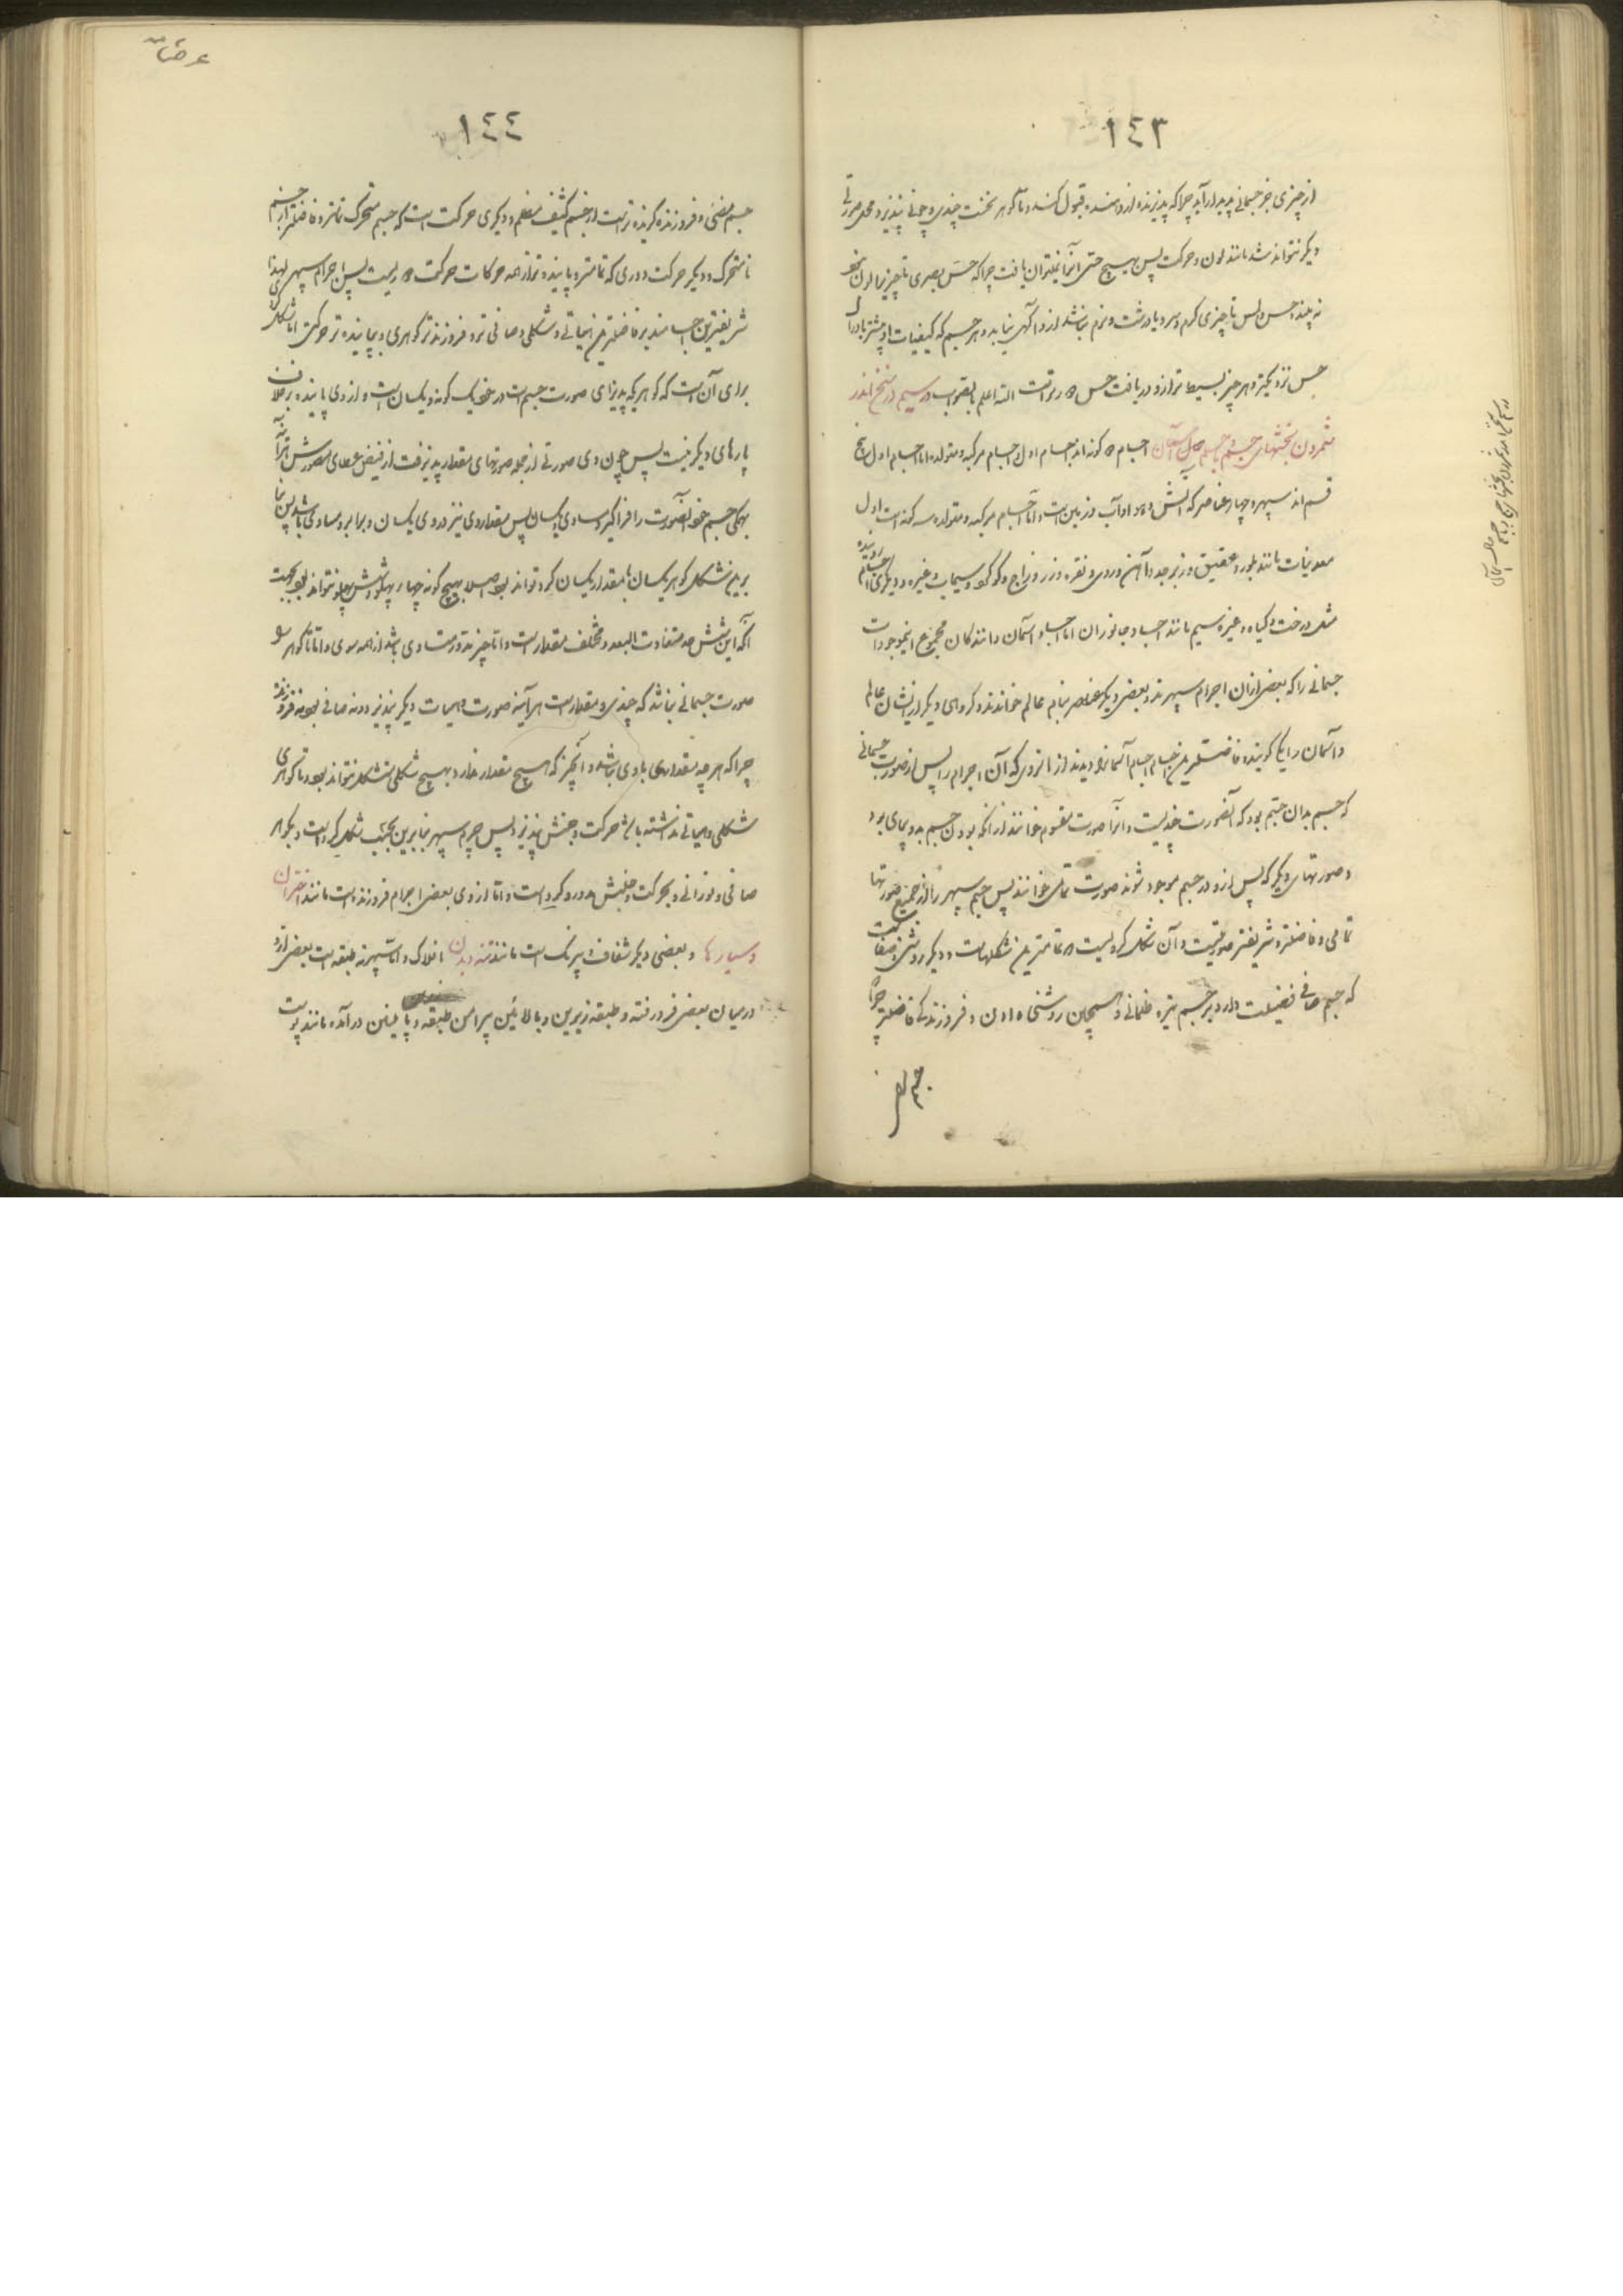 ١٤٣
از چیزی جز جسمانی پدیدار آید چرا که پذیرنده ازو قبول کند و تا گوهر نخست چندی و چونی نپذیرد محل صورتی
دیگر نتواند شد مانند لون و حرکت پس بهیچ حسی آنرا نمیتوان یافت چرا که حس بصری تا چیز با لون نبود
نه بیند و حس لمس تا چیزی گرم و سرد یا درشت و نرم نباشد ازو آگهی نیابد و هر جسم که کیفیات او بیشتر بادراک
حس نزدیکتر و هر چیز بسیط تر ازو دریافت حس دورتر است الله اعلم بالصواب در سیم در سخن اندر
شمردن بخشهای جسم و اجسام آسمان اجسام دو گونه اند اجسام اول و اجسام مرکبه و متولده اما اجسام اول پنج
قسم اند سپهر و چهار عناصر که آتش و هوا و آب و زمین است و اما اجسام مرکبه و متولده سه گونه است اول
معدنیات مانند بلور و عقیق و زبرجد و آهن و روی و نقره و زر و زاج و گوگرد و سیماب و غیره و دیگری اجسام روینده
مثل درخت و گیاه و غیره سیم مانند اجساد جانوران اما اجساد آسمان دانندگان مجموع این موجودات
جسمانی را که بعضی ازان اجرام سپهرند و بعضی دیگر عناصر بنام عالم خواندند و گروهی دیگر از ایشان عالم
و آسمان را یکی گویند و فاضلترین اجسام اجسام آسمانرا دیدند از انروی که آن اجرام را پس از صورت جسمانی
که جسم بدان جسم بود که آنصورت چندیست و آنرا صورت مقوم خوانند ازانکه بودن جسم بدو بپای بود
و صورتهای دیگر که پس ازو در جسم موجود شوند صورت تمامی خوانند پس جسم سپهر را از جمیع صورتها
تمامی و فاضلتر و شریفتر صورتیست و آن شکل کرویست که تمامترین شکلهاست و دیگر روشنی و صفاست
که جسم صافی فضیلت دارد بر جسم تیره ظلمانی و همچنان روشنی دادن و فروزندگی فاضلتر چرا که
جسم
١٤٤
جسم مضیء و فروزنده گزیده تر است از جسم کثیف مظلم و دیگری حرکت است که جسم متحرک تمامتر و فاضلتر از جسم
نامتحرک و دیگر حرکت دوری که تمامتر و پاینده تر از همه حرکات حرکت دوریست پس اجرام سپهری لهذا
شریفترین اجسامند بر فاضلترین هیأتی و شکلی و صافی تر و فروزنده تر گوهری و پاینده تر حرکتی اما شکل کری
برای آن است که گوهریکه پذیرای صورت جسم است در خود یک گونه و یکسان است و از وی پاینده بر خلاف
پارهای دیگر نیست پس چون وی صورتی از جمله صورتهای مقدار پذیرفت از فیض عطای مصورش هر آینه
بهگی جسم خود آنصورت را فرا گیرد مساوی و یکسان پس مقدار وی نیز در وی یکسان و برابر و مساوی باشد پس بنا
برین شکل گوهر یکسان با مقدار یکسان گرد تواند بود اصلا بهیچ گونه چهار پهلو و شش پهلو نتواند بود بجهت
آنکه این شش حد متفاوت البعد و مختلف مقدار است و اما چیز مدور متساوی باشد از همه سوی و اما تا گوهر سو
صورت جسمانی نباشد که چندی و مقدار است هر آینه صورت و هیات دیگر نپذیرد و نه صافی بود نه فروزنده
چرا که هر چه مقدارهای با وی نباشد و آنچیز که هیچ مقدار ندارد بهیچ شکلی متشکل نتواند بود و تا گوهری
شکلی و هیاتی نداشته باشد حرکت و جنبش نپذیرد پس جرم سپهر بنابرین بحسب شکل گرد است و بگوهر
صافی و نورانی و بحرکت و جنبش مدور و گرد است و اما از وی بعضی اجرام فروزنده است مانند اختران
و سیارها و بعضی دیگر شفاف و بیرنگ است مانند تنه و بدن افلاک و اما سپهر نه طبقه است بعضی ازو
درمیان بعضی فرو رفته و طبقه زیرین و بالائین پیرامن طبقه پائینین در آمده مانند پوست